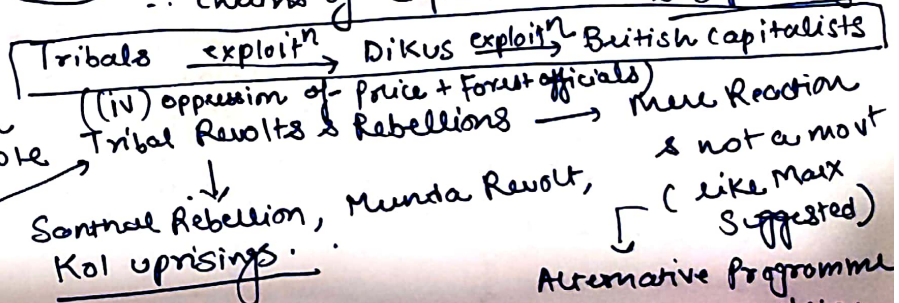 Tribals exploitⁿ → Dikus exploitⁿ → British Capitalists
(iv) oppression of Police + Forest officials)
Tribal Revolts & Rebellions → Mere Reaction
& not a movt
(like Marx
Suggested)
↓
Santhal Rebellion, Munda Revolt,
Kol uprisings.
Alternative Programme